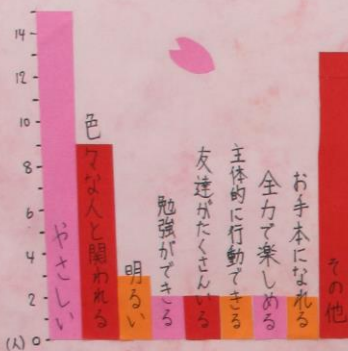 14
12
10
8
6
4
2
(人) 0
やさしい
色々な人と関われる
明るい
勉強ができる
友達がたくさんいる
主体的に行動できる
全力で楽しめる
お手本になれる
その他